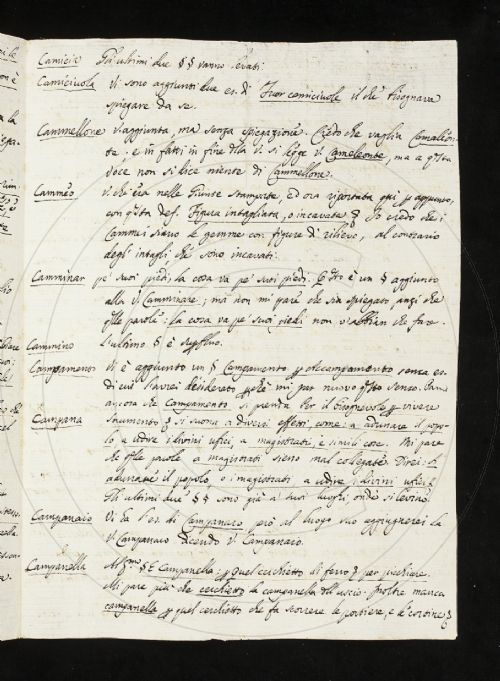 Camicia Gli ultimi due §§ vanno levati.
Camiciuola Vi sono aggiunti due es. di Fuor camiciuole il che bisognava
spiegare da se.
Cammellone v'aggiunta, ma senza spiegazione. Credo che vaglia Camaleon-
te, e in fatti in fine di la vi si legge V. Cameleonte, ma a qsta
voce non si dice niente di Cammellone.
Cammeo V. ch'era nelle Giunte stampate, ed ora riportata qui
con qsta def. Figura intagliata, o incavata. Io credo che i
Cammei siano le gemme con figure di rilievo, al contrario
degli intagli che sono incavati.
Camminar pe' suoi piedi, la cosa va pe' suoi piedi. Qsto è un § aggiunto
alla V. Camminare; ma non mi pare che sia spiegato, anzi che
qlle parole: la cosa va pe' suoi piedi non v'abbian che fare.
Cammino L'ultimo § è superfluo.
Campamento Vi è aggiunto un § Campamento senza es.
di cui l'avrei desiderato chè mi par nuovo qsto senso.
ancora che Campamento si prenda per il vivere
Campana strumento si suona a diversi effetti, come: a adunare il popo-
lo a udire i divini ufici, a magistrati, e simili cose. Mi pare
che qlle parole a magistrati sieno mal collegate. Direi: ad
adunare il popolo, o i magistrati a udire i divini ufici.
Gli ultimi due §§ sono già a' suoi luoghi onde si levino.
Campanaio Vi ha l'es. di Campanaco, però al luogo suo aggiugnerei la
V. Campanaco dicendo V. Campanaio.
Campanella Al § È Campanella: quel cerchietto di ferro per picchiare.
Mi pare più che cerchietto la campanella dell'uscio. Inoltre manca
campanella quel cerchietto che fa scorrere le portiere, e le cortine